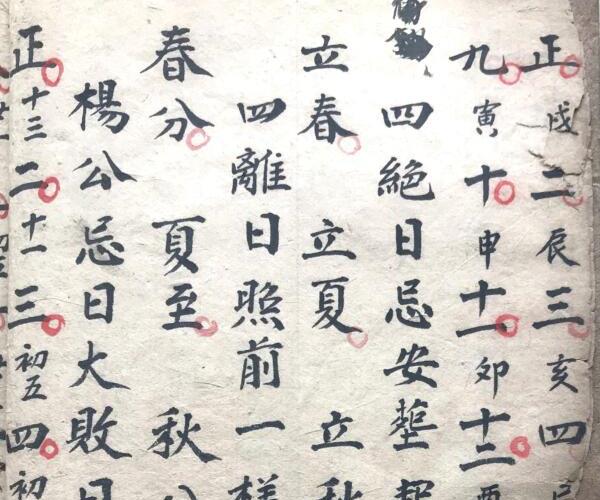 正戌二辰三亥四
九寅十申十一卯十二酉
四絕日忌安塟
立春 立夏 立秋
四離日照前一樣
春分 夏至 秋分
楊公忌日大敗日
正十三二十一三初五四初